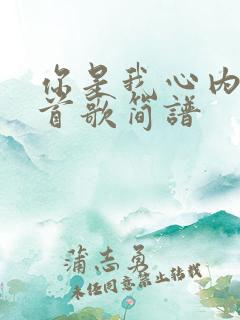 你是我心内
首歌简谱
蒲志勇
未经同意禁止转载